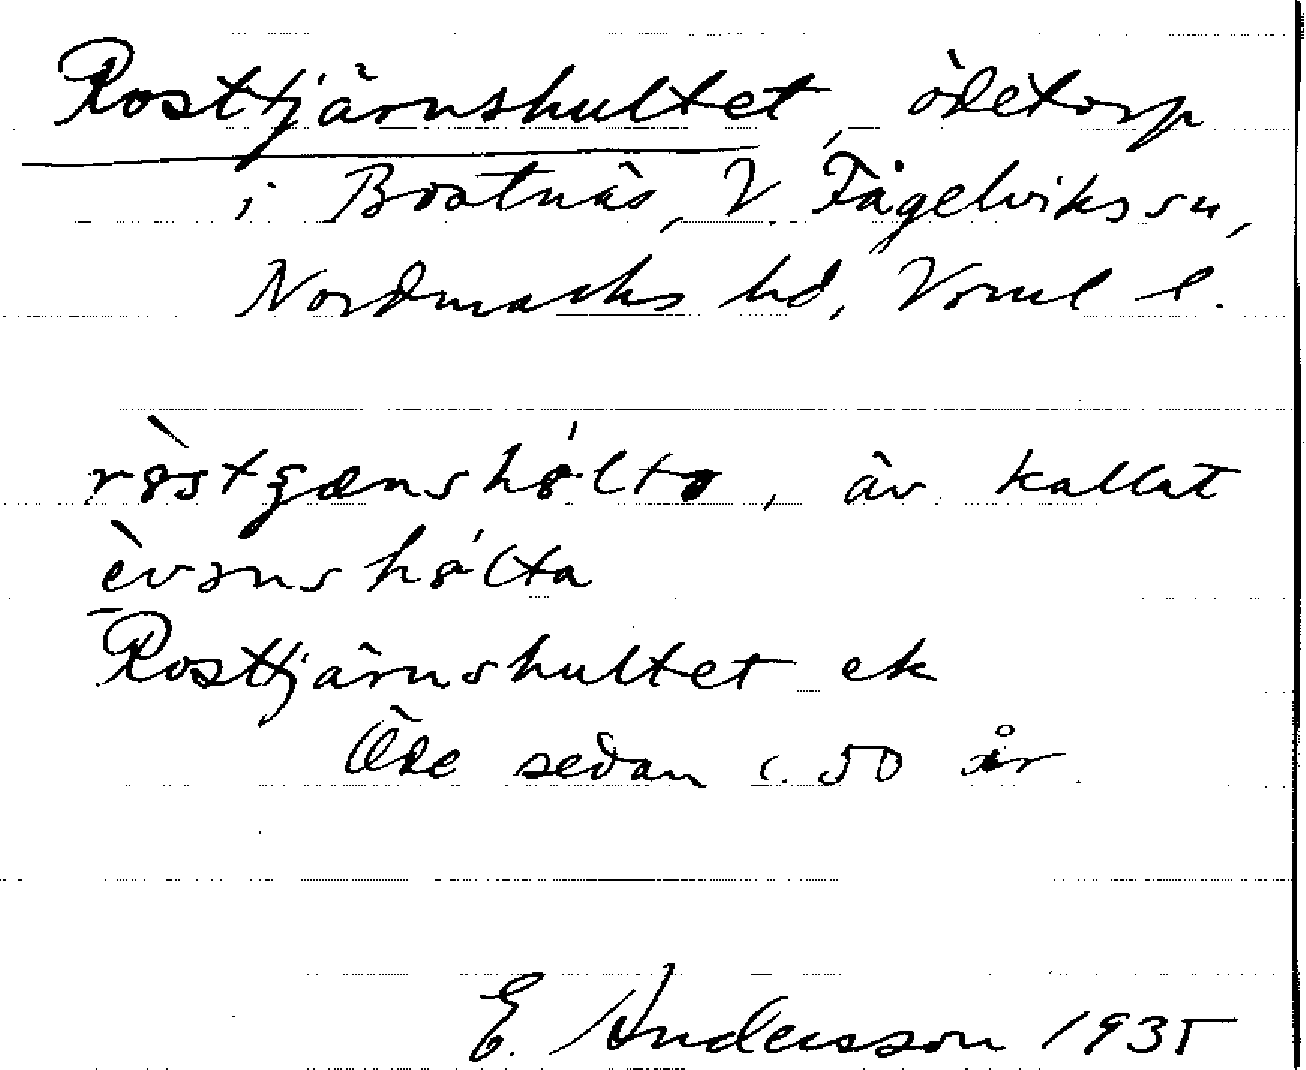 Rosttjärnshultet, ödetorp
i Bostnäs, V Fågelviks sn,
Nordmarks hd, Vrml l.
röstgænshølta, äv. kallat
èvenshølta
Rosttjärnshultet ek
Öde sedan c. 50 år
E. Andersson 1935